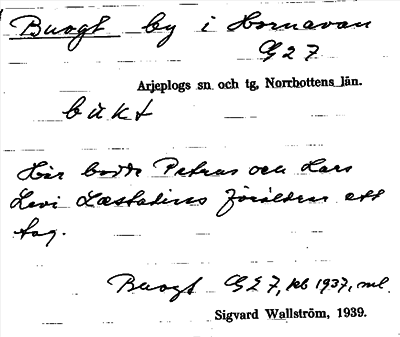 Buogt by i Hornavan
G 2 7
Arjeplogs sn och tg, Norrbottens län.
bukt
Här bodde Petrus och Lars
Levi Læstadius föräldrar ett
tag.
Buogt G 2 7, kb 1937, ml.
Sigvard Wallström, 1939.